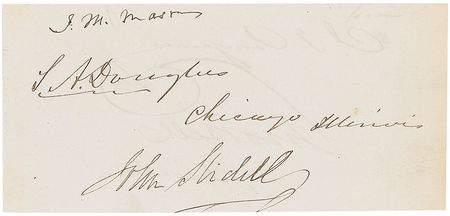 J. M. Mason
S. A. Douglas
Chicago Illinois
John Slidell